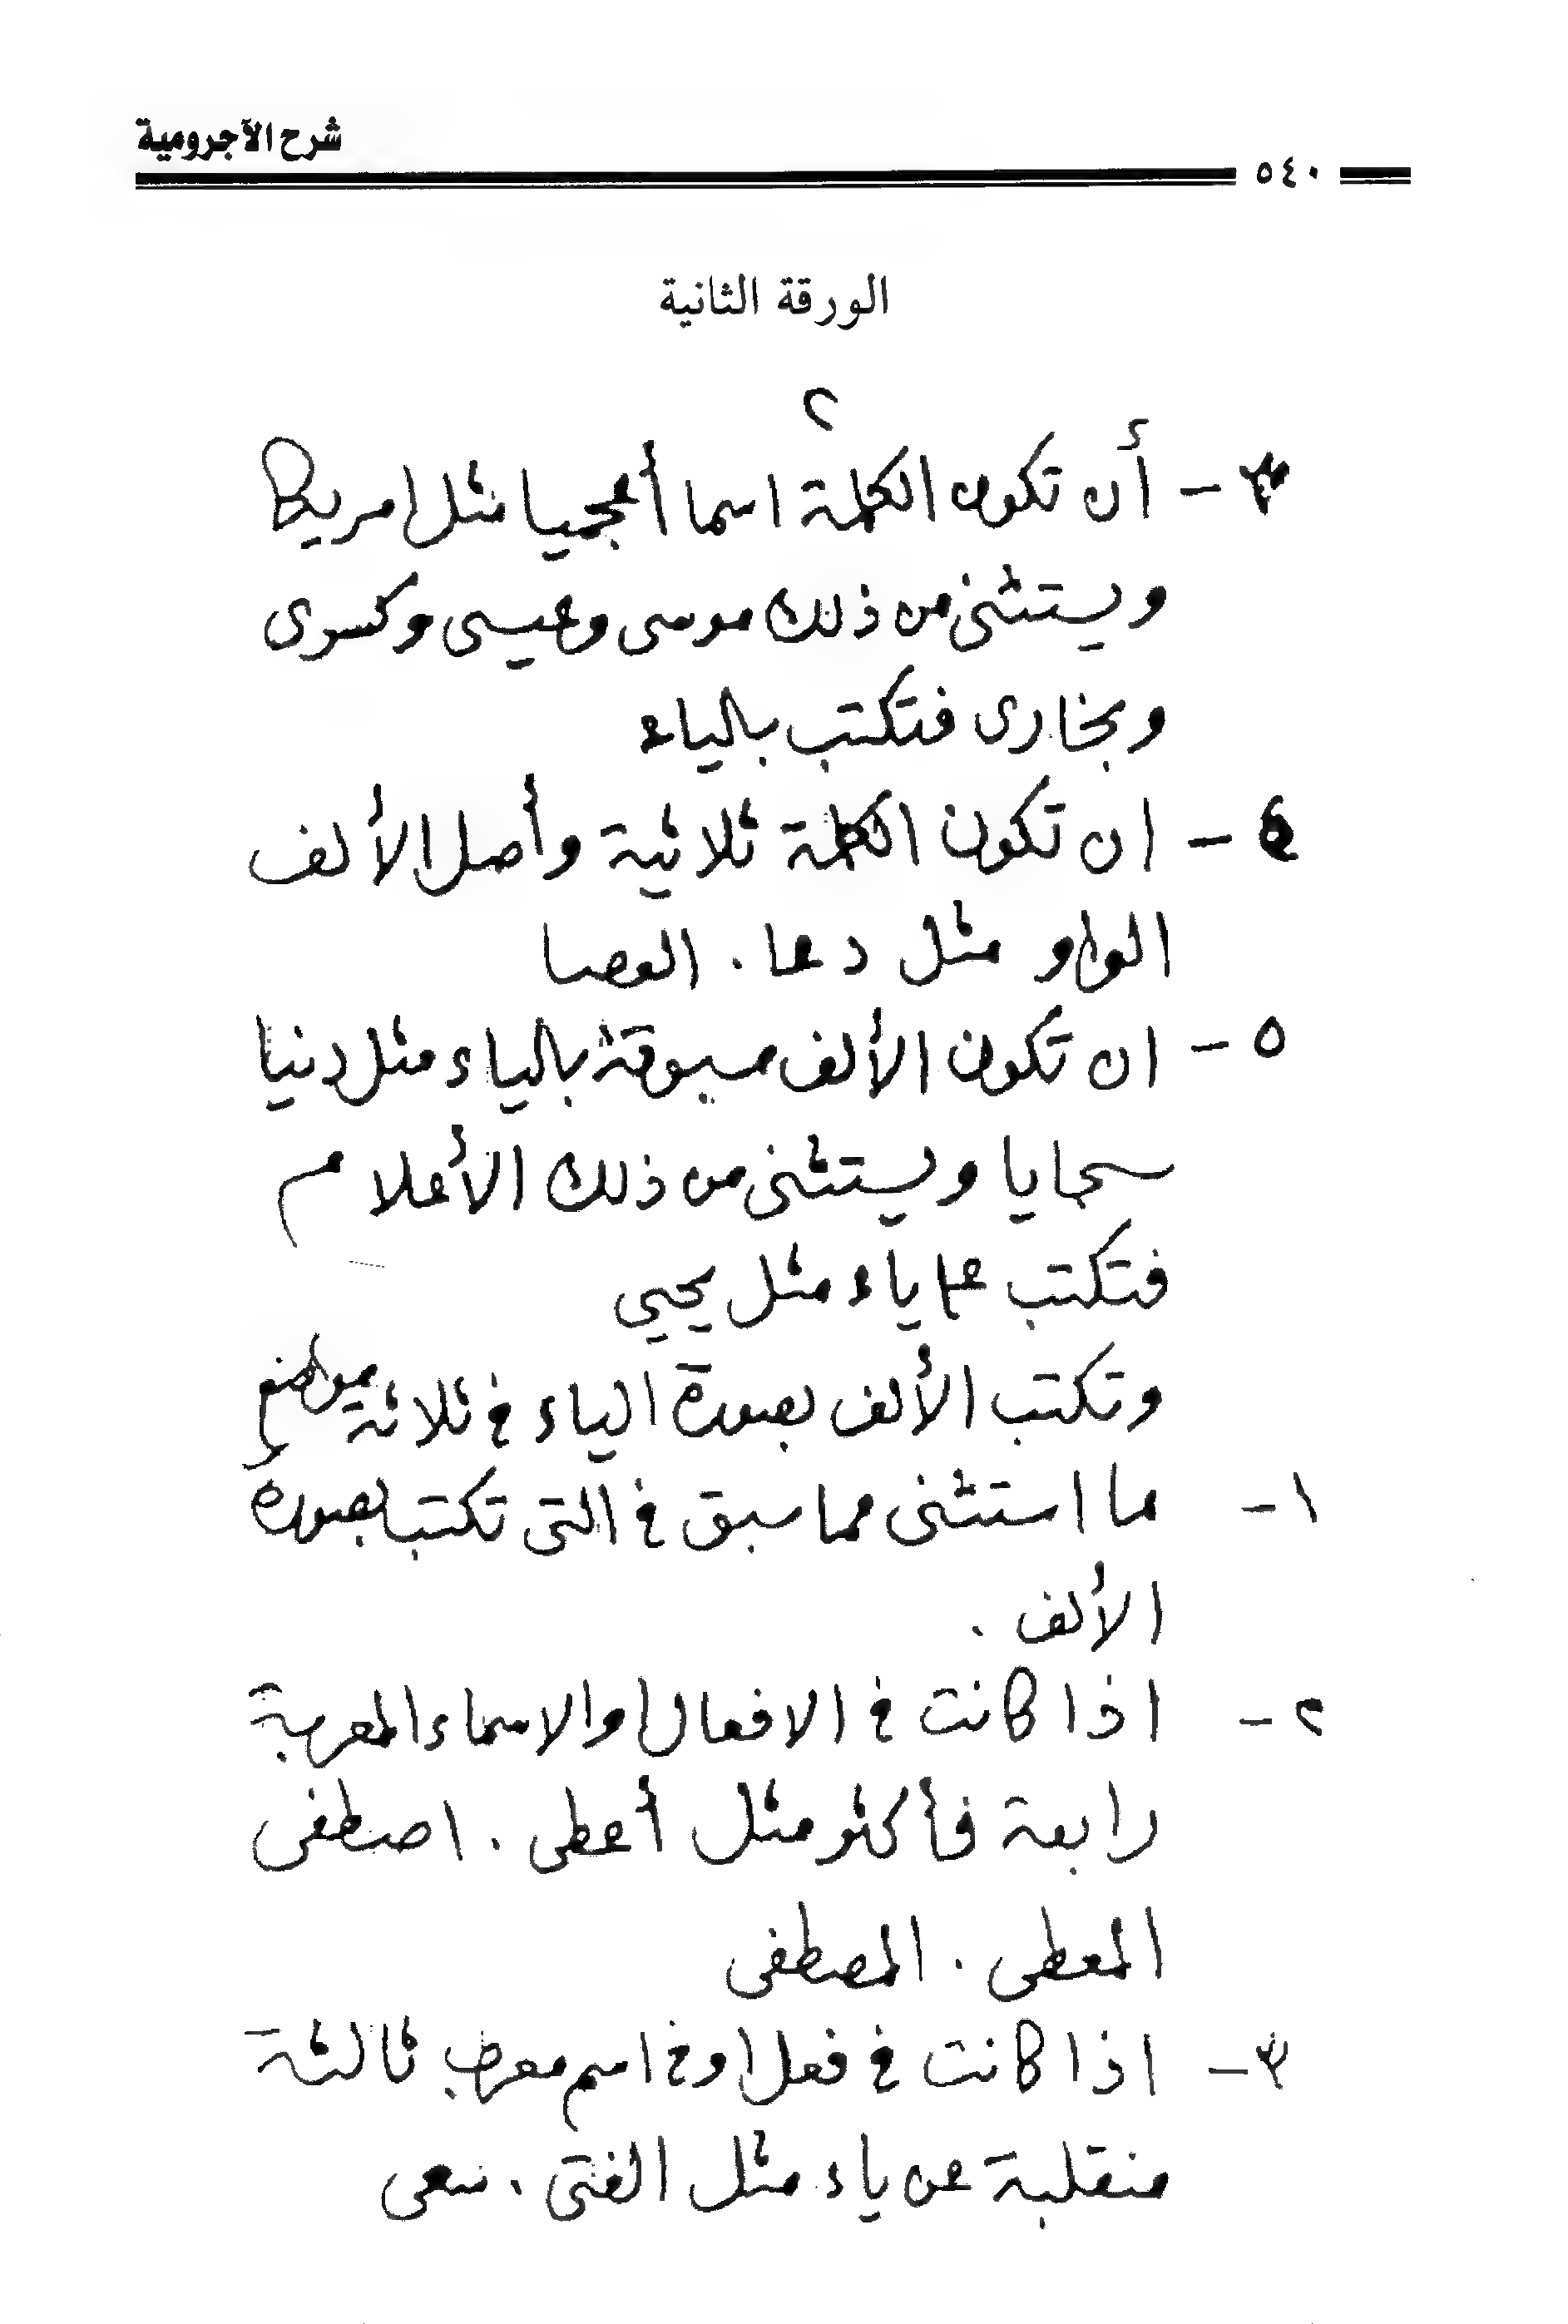 شرح الآجرومية
٥٤٠
الورقة الثانية
٢
٣ - أن تكون الكلمة اسما أعجميا مثل امريكا
ويستثنى من ذلك موسى وعيسى وكسرى
وبخارى فتكتب بالياء
٤ - ان تكون الكلمة ثلاثية وأصل الألف
الواو مثل دعا . العصا
٥ - ان تكون الألف مسبوقة بالياء مثل دنيا
سجايا ويستثنى من ذلك الأعلام
فتكتب ياء مثل يحيى
وتكتب الألف بصورة الياء في ثلاثة مواضع
١ - ما استثنى مما سبق في التى تكتب بصورة
الألف .
٢ - اذا كانت في الافعال او الاسماء المعربة
رابعة فأكثر مثل أعطى . اصطفى
المعطى . المصطفى
٣ - اذا كانت في فعل او في اسم معرب ثالثة
منقلبة عن ياء مثل الفتى . سعى